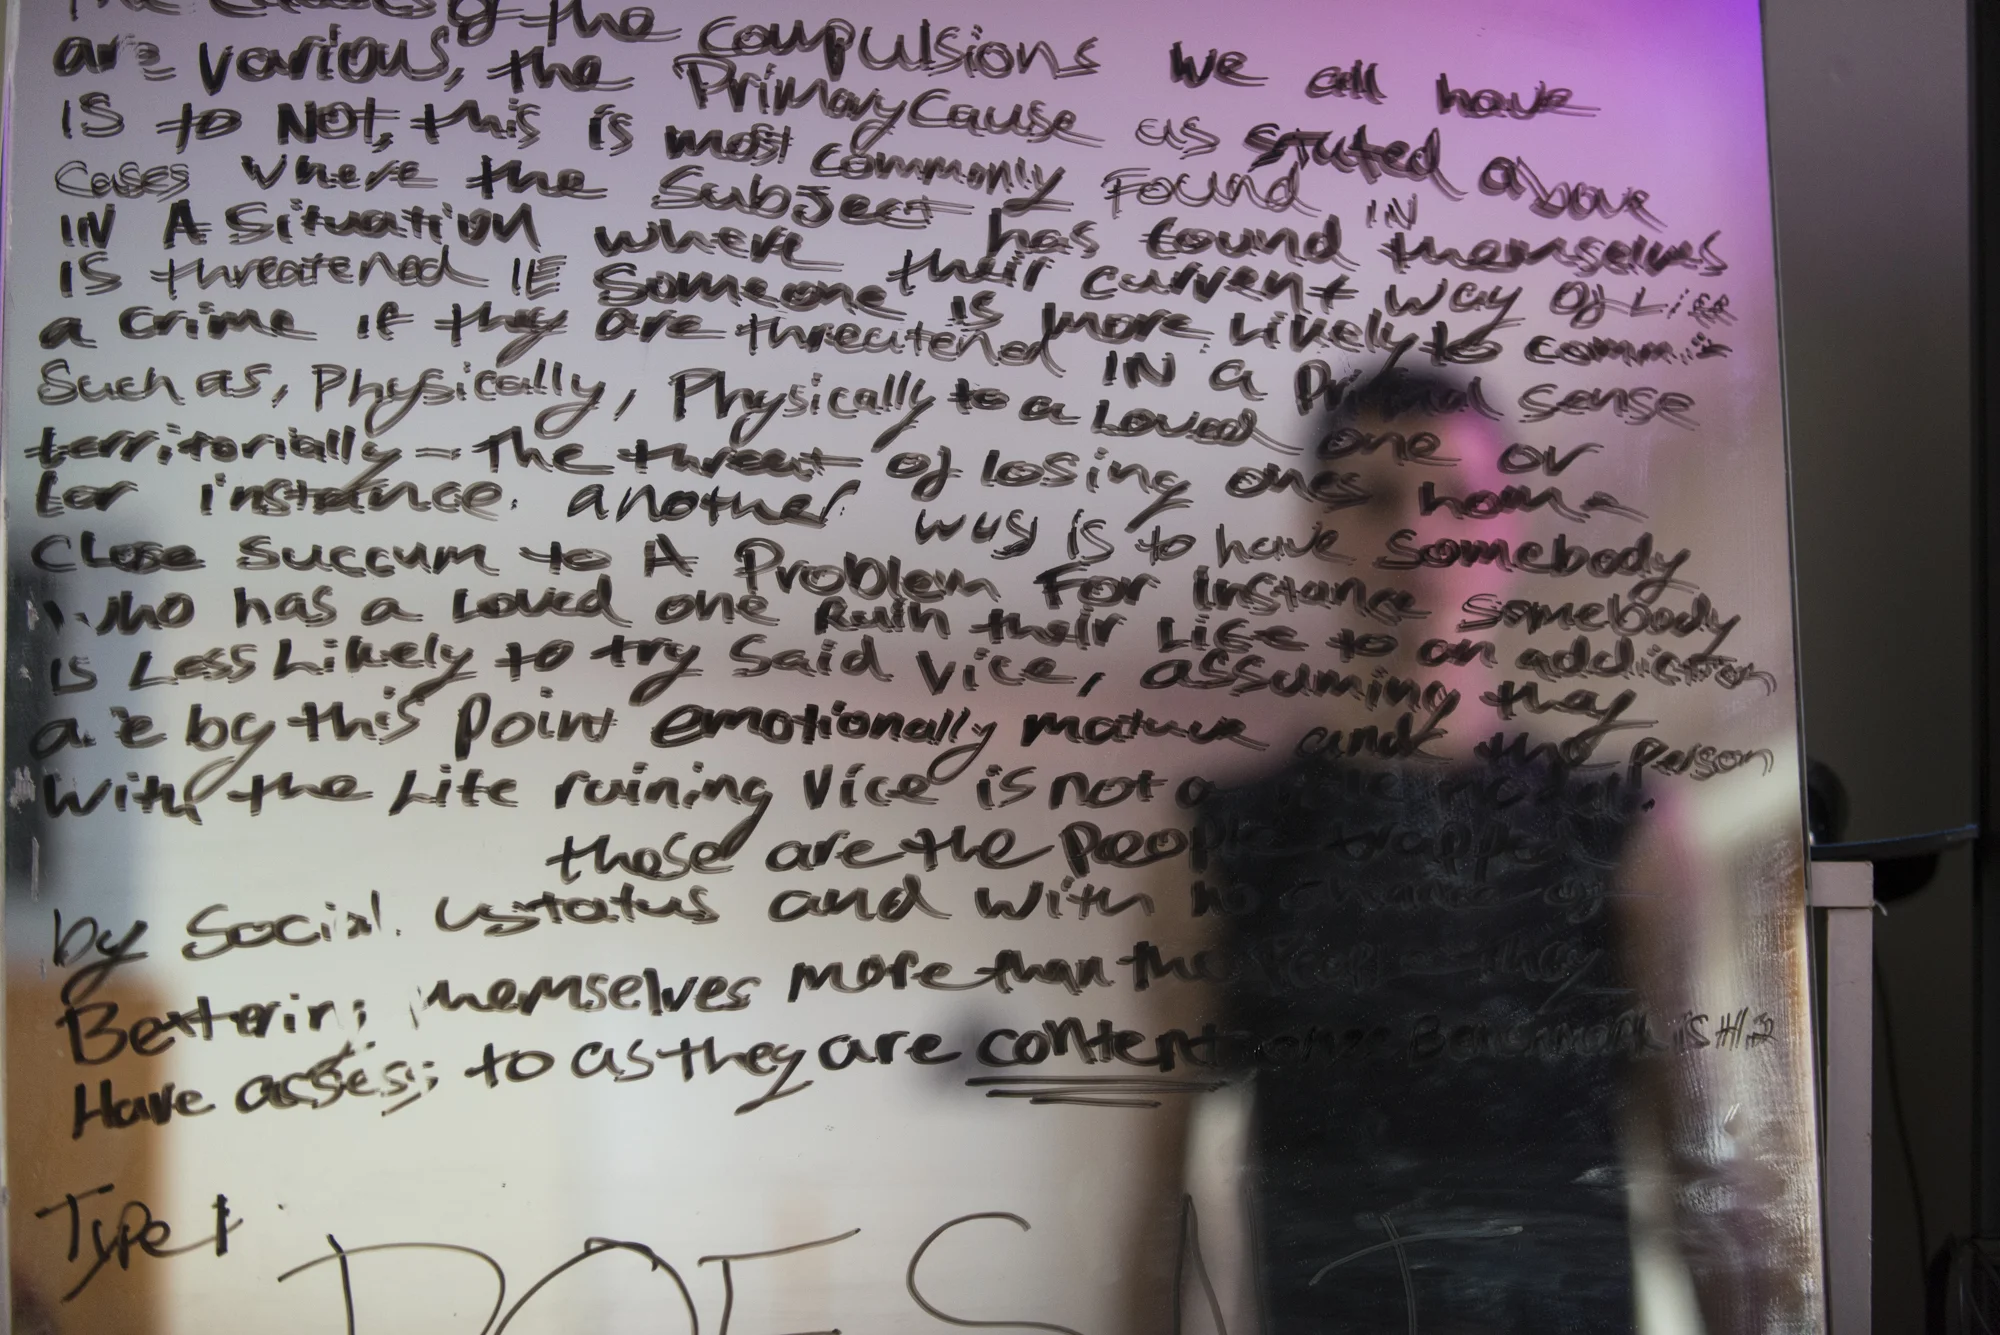 The causes of the compulsions we all have
are various, the Primary Cause as stated above
IS to NOT, this is most commonly Found IN
Cases where the Subject has found themselves
IN A Situation where their current way of Life
IS threatened IE Someone is more likely to commit
a crime if they are threatened IN a Primal sense
Such as, Physically, Physically to a Loved one or
territorially - The threat of losing ones home
for instance. another way is to have somebody
Close Succum to A Problem For instance somebody
who has a Loved one Ruin their Life to an addiction
is Less Likely to try Said Vice, assuming they
are by this Point emotionally mature and the Person
With the Life ruining Vice is not a role model.
these are the People trapped
by Social status and with no chance of
Bettering themselves more than the People they
Have assess to as they are content Benchmark is #12
Type 1
DOESNT